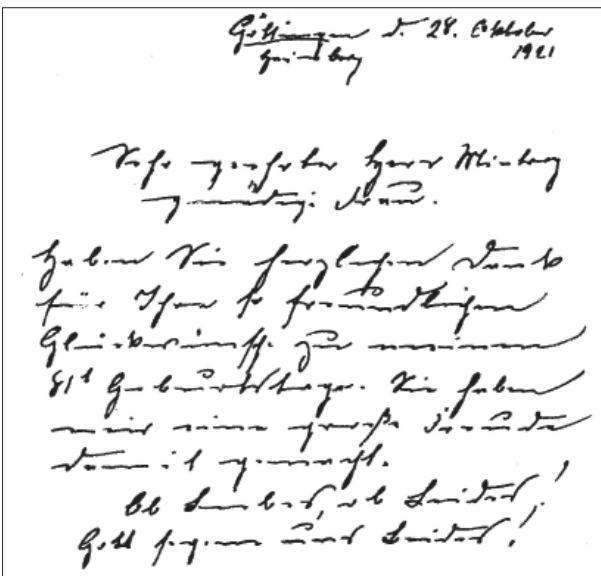 Göttingen d. 28. Oktober
Hainberg 1921
Sehr geehrter Herr
gnädige Frau.
Haben Sie herzlichen Dank
für Ihre so freundlichen
Glückwünsche zu meinem
81t Geburtstage. Sie haben
mir eine große Freude
damit gemacht.
Ob Liebes, ob Leides!
Gott segne uns beides!